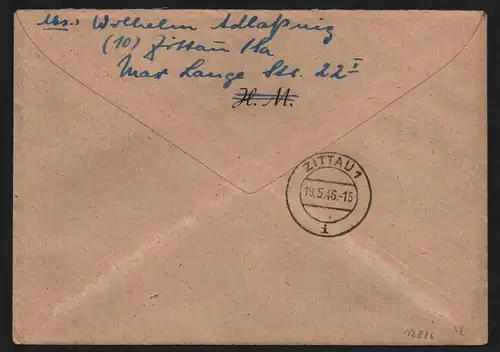 Abs.: Wilhelm Adlaßnig
(10) Zittau /Sa
Max Lange Str. 22 I
H. M.
ZITTAU 1
19.5.46.-15
i
12816